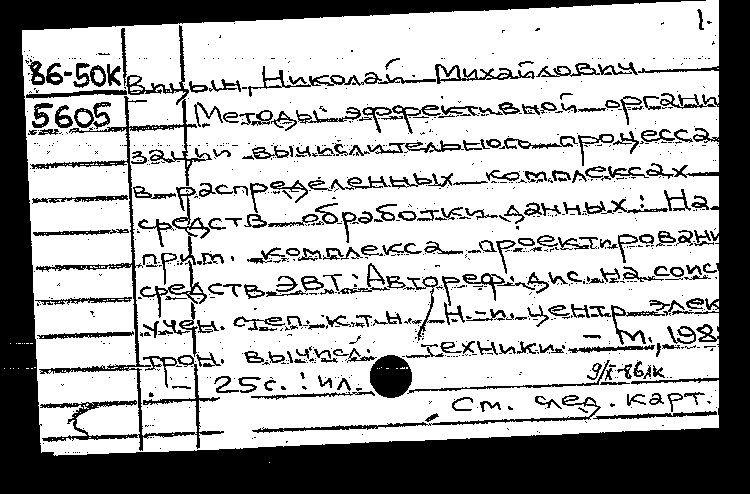 1.
86-50К Вицын, Николай Михайлович.
5605 Методы эффективной органи
зации вычислительного процесса
в распределенных комплексах
средств обработки данных: На
прим. комплекса проектировани
средств ЭВТ: Автореф. дис. на соис
учен. степ. к.т.н. / Н.-и. центр элек
трон. вычисл. техники. – М., 198
. – 25с. : ил.
9/X-86
См. след. карт.